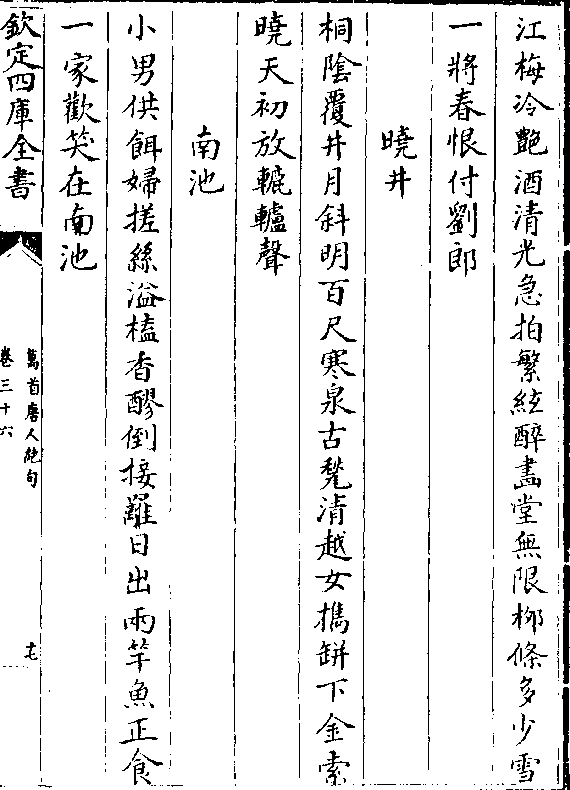 江梅冷艶酒清光急拍繁絃醉畫堂無限栁條多少雪
一將春恨付劉郎
曉井
桐陰覆井月斜明百尺寒泉古甃清越女携缾下金索
曉天初放轆轤聲
南池
小男供餌婦搓絲溢榼香醪倒接䍦日出兩竿魚正食
一家歡笑在南池
欽定四庫全書
萬首唐人絶句
卷三十六